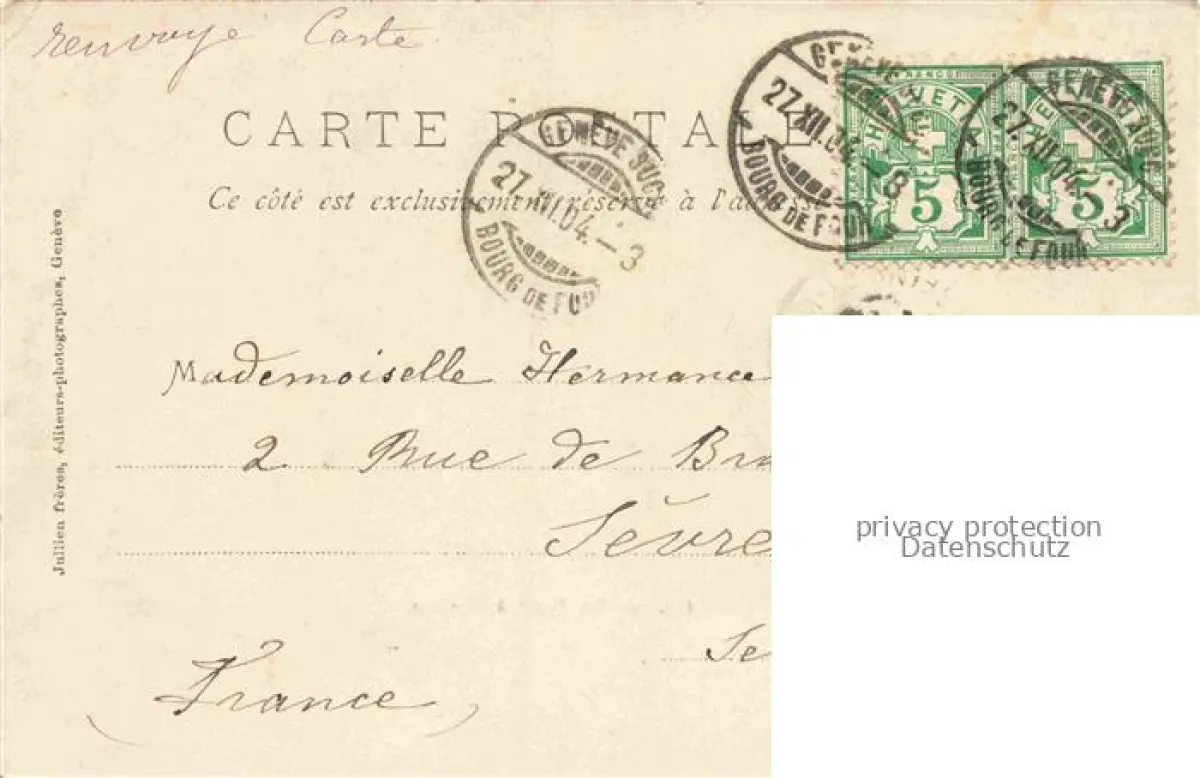 renvoye Carte
CARTE POSTALE
Ce côté est exclusivement réservé à l'adresse
GENÈVE SUCC
27.XII.04.–3
BOURG DE FOUR
GENÈVE
27.XII.04.–8
BOURG DE FOUR
GENÈVE
27.XII.04. 3
BOURG DE FOUR
FRANCO
HELVETIA
5
HE
5
Jullien frères, éditeurs-photographes, Genève
Mademoiselle Hermance
2 Rue de Bra
Sèvre
Se
France
privacy protection
Datenschutz